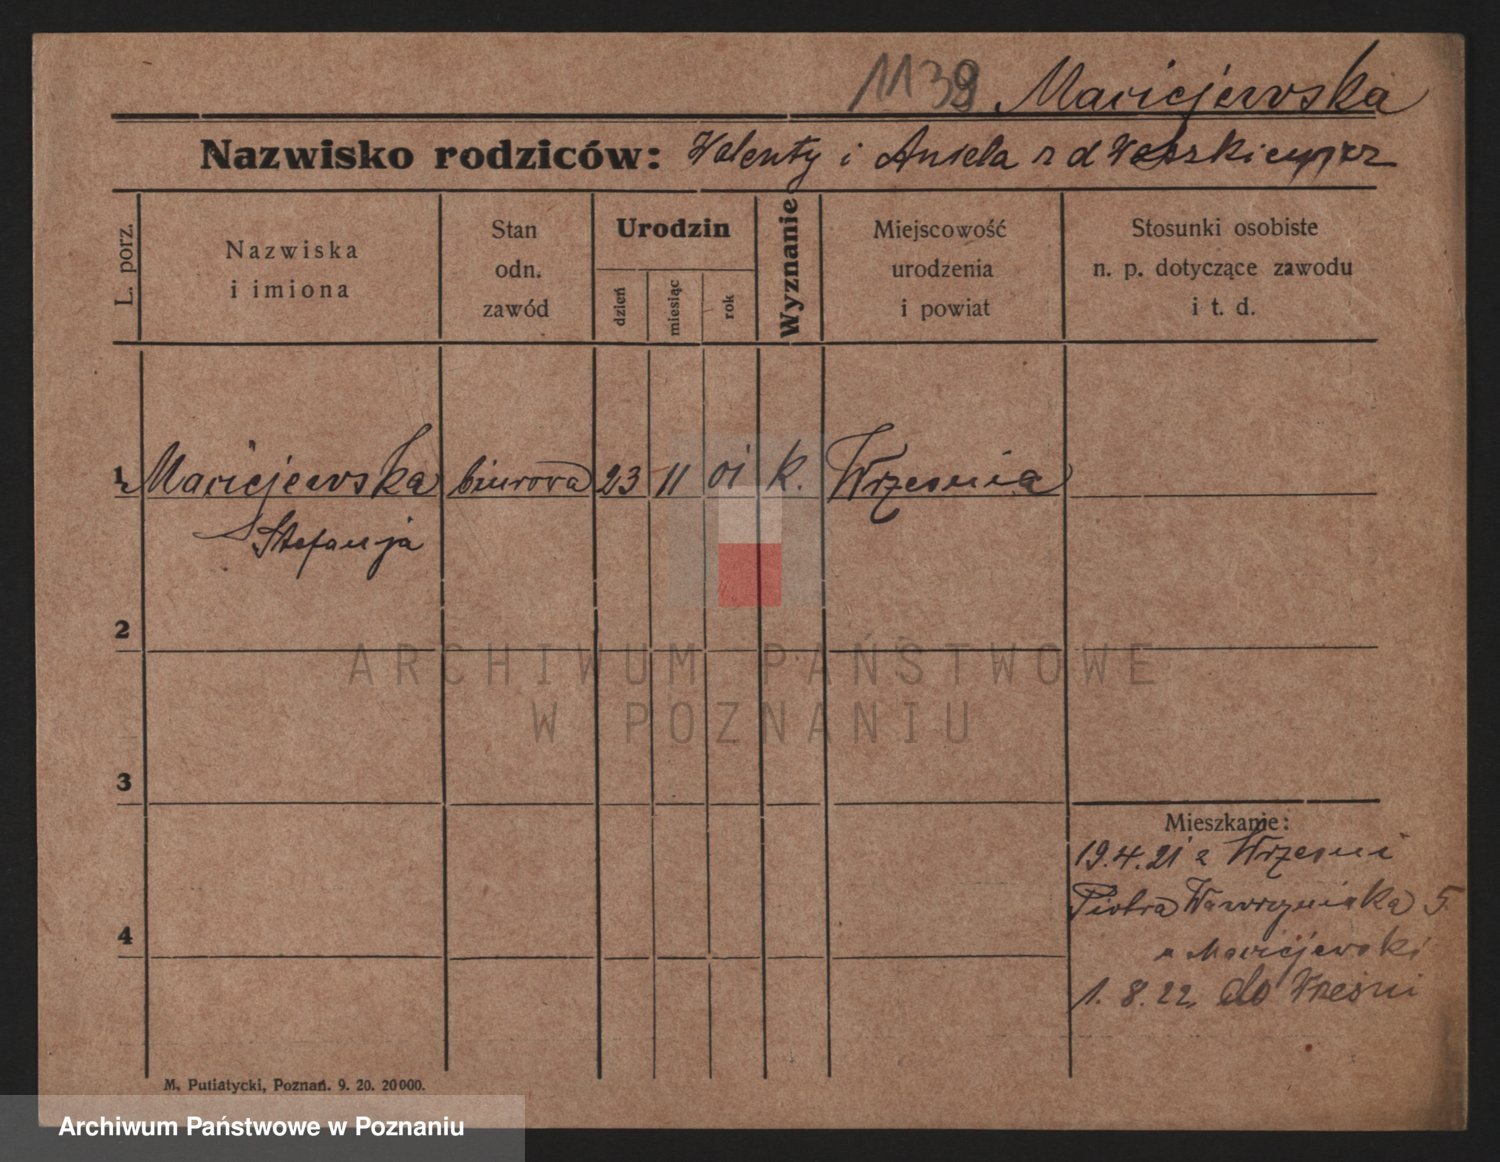 1139 Maciejewska
Nazwisko rodziców: Walenty i Aniela z d
L. porz.
Nazwiska
i imiona
Stan
odn.
zawód
Urodzin
dzień
miesiąc
rok
Wyznanie
Miejscowość
urodzenia
i powiat
Stosunki osobiste
n. p. dotyczące zawodu
i t. d.
1 Maciejewska biurowa 23 11 01 k. Września
Stefanja
2
ARCHIWUM PAŃSTWOWE
W POZNANIU
3
Mieszkanie:
19.4.21 z Wrześni
Piotra Wawrzyniaka 5
u Maciejewski
4
1. 8. 22. do Wreśni
M. Putiatycki, Poznań. 9. 20. 20000.
Archiwum Państwowe w Poznaniu